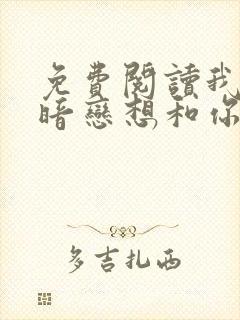 免費閱讀我
暗戀想和你
多吉扎西